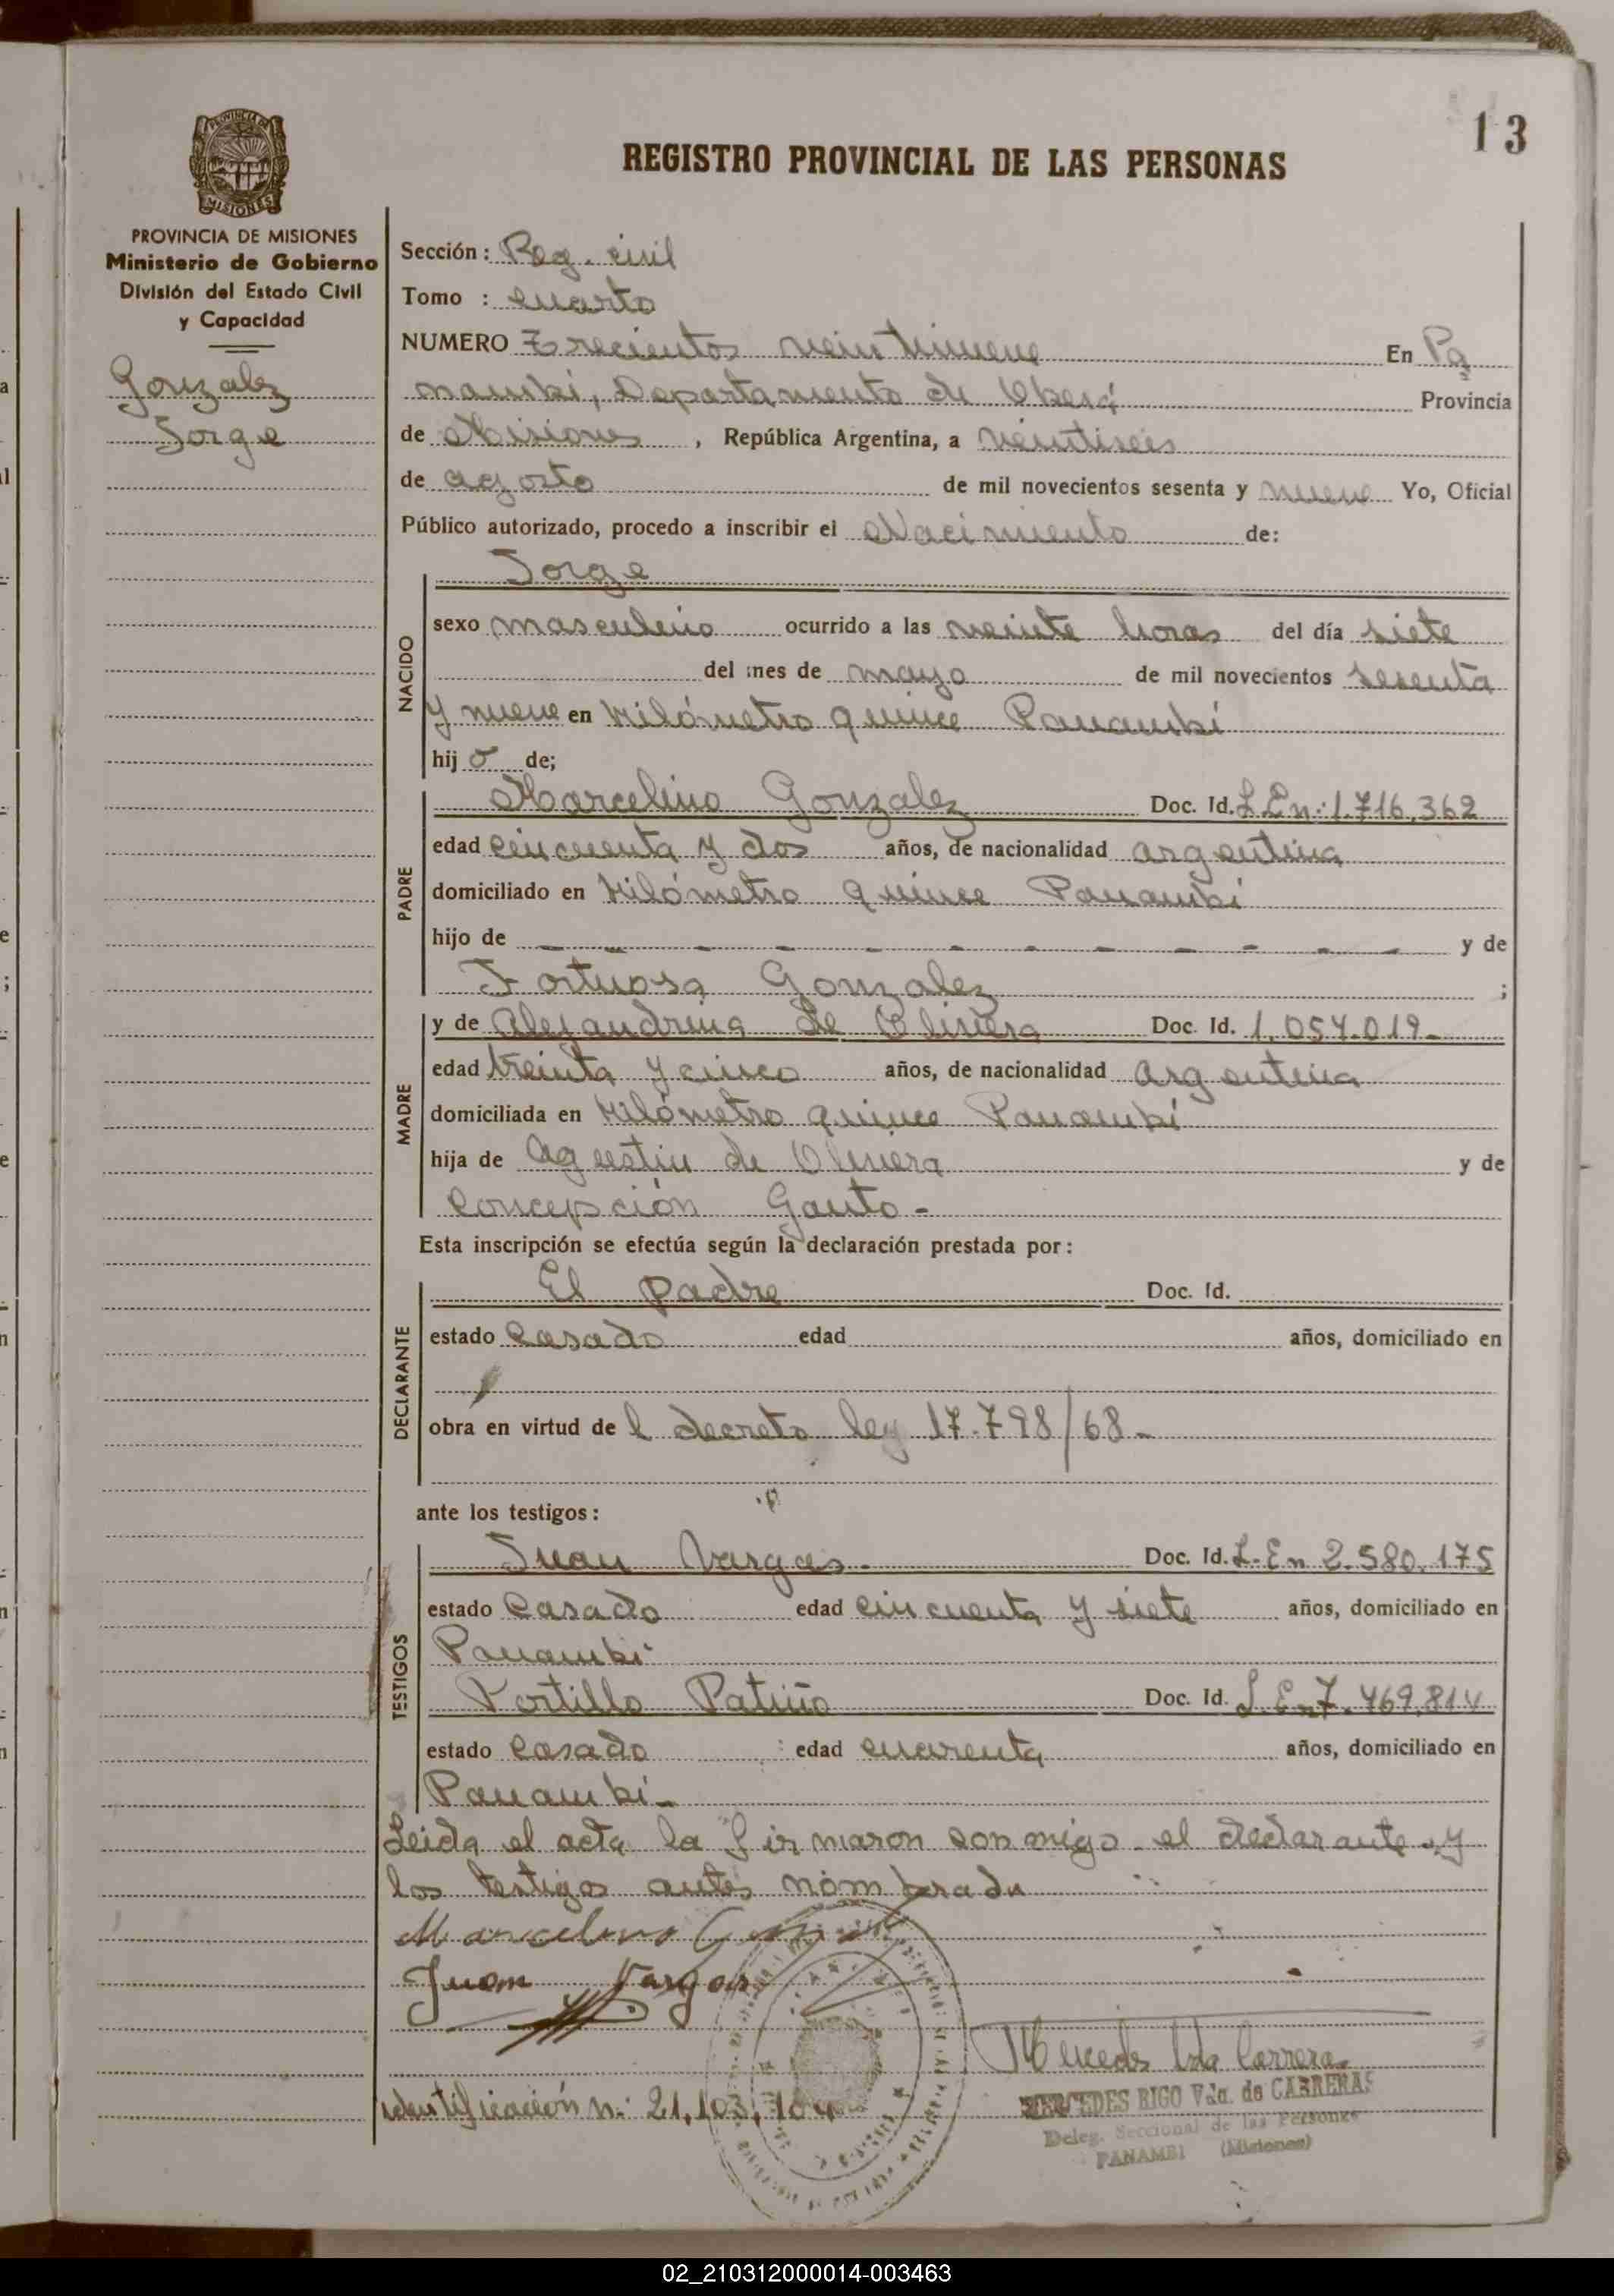 13
REGISTRO PROVINCIAL DE LAS PERSONAS
PROVINCIA DE MISIONES
Ministerio de Gobierno
División del Estado Civil
y Capacidad
Gonzalez
Jorge
Sección: Reg. civil
Tomo : cuarto
NUMERO Trecientos veintinueve En Pa
nambí, Departamento de Oberá Provincia
de Misiones, República Argentina, a veintiseis
de agosto de mil novecientos sesenta y nueve Yo, Oficial
Público autorizado, procedo a inscribir el Nacimiento de:
NACIDO
Jorge
sexo masculino ocurrido a las veinte horas del día siete
del mes de mayo de mil novecientos sesenta
y nueve en Kilómetro quince Panambí
hijo de;
PADRE
Marcelino Gonzalez Doc. Id. L.En: 1.716.362
edad cincuenta y dos años, de nacionalidad argentina
domiciliado en Kilómetro quince Panambí
hijo de - - - - - - - - - - - - y de
Fortuosa Gonzalez ;
MADRE
y de Alejandrina De Olivera Doc. Id. 1.054.019-
edad treinta y cinco años, de nacionalidad argentina
domiciliada en Kilómetro quince Panambí
hija de Agustin de Olivera y de
Concepción Gauto-
Esta inscripción se efectúa según la declaración prestada por:
DECLARANTE
El padre Doc. Id.
estado casado edad años, domiciliado en
obra en virtud del decreto ley 17.798/68-
ante los testigos:
TESTIGOS
Juan Vargas- Doc. Id. L.En 2.580.175
estado casado edad cincuenta y siete años, domiciliado en
Panambí
Portillo Patiño Doc. Id. L.En 7.469.814
estado casado edad cuarenta años, domiciliado en
Panambí-
Leida el acta la firmaron conmigo el declarante y
los testigos antes nombrado
Marcelino
Juan Vargas
Mercedes Vda Carreras
MERCEDES RIGO Vda. de CARRERAS
Deleg. Seccional de las Personas
PANAMBI (Misiones)
identificación n: 21.103.104
02_210312000014-003463